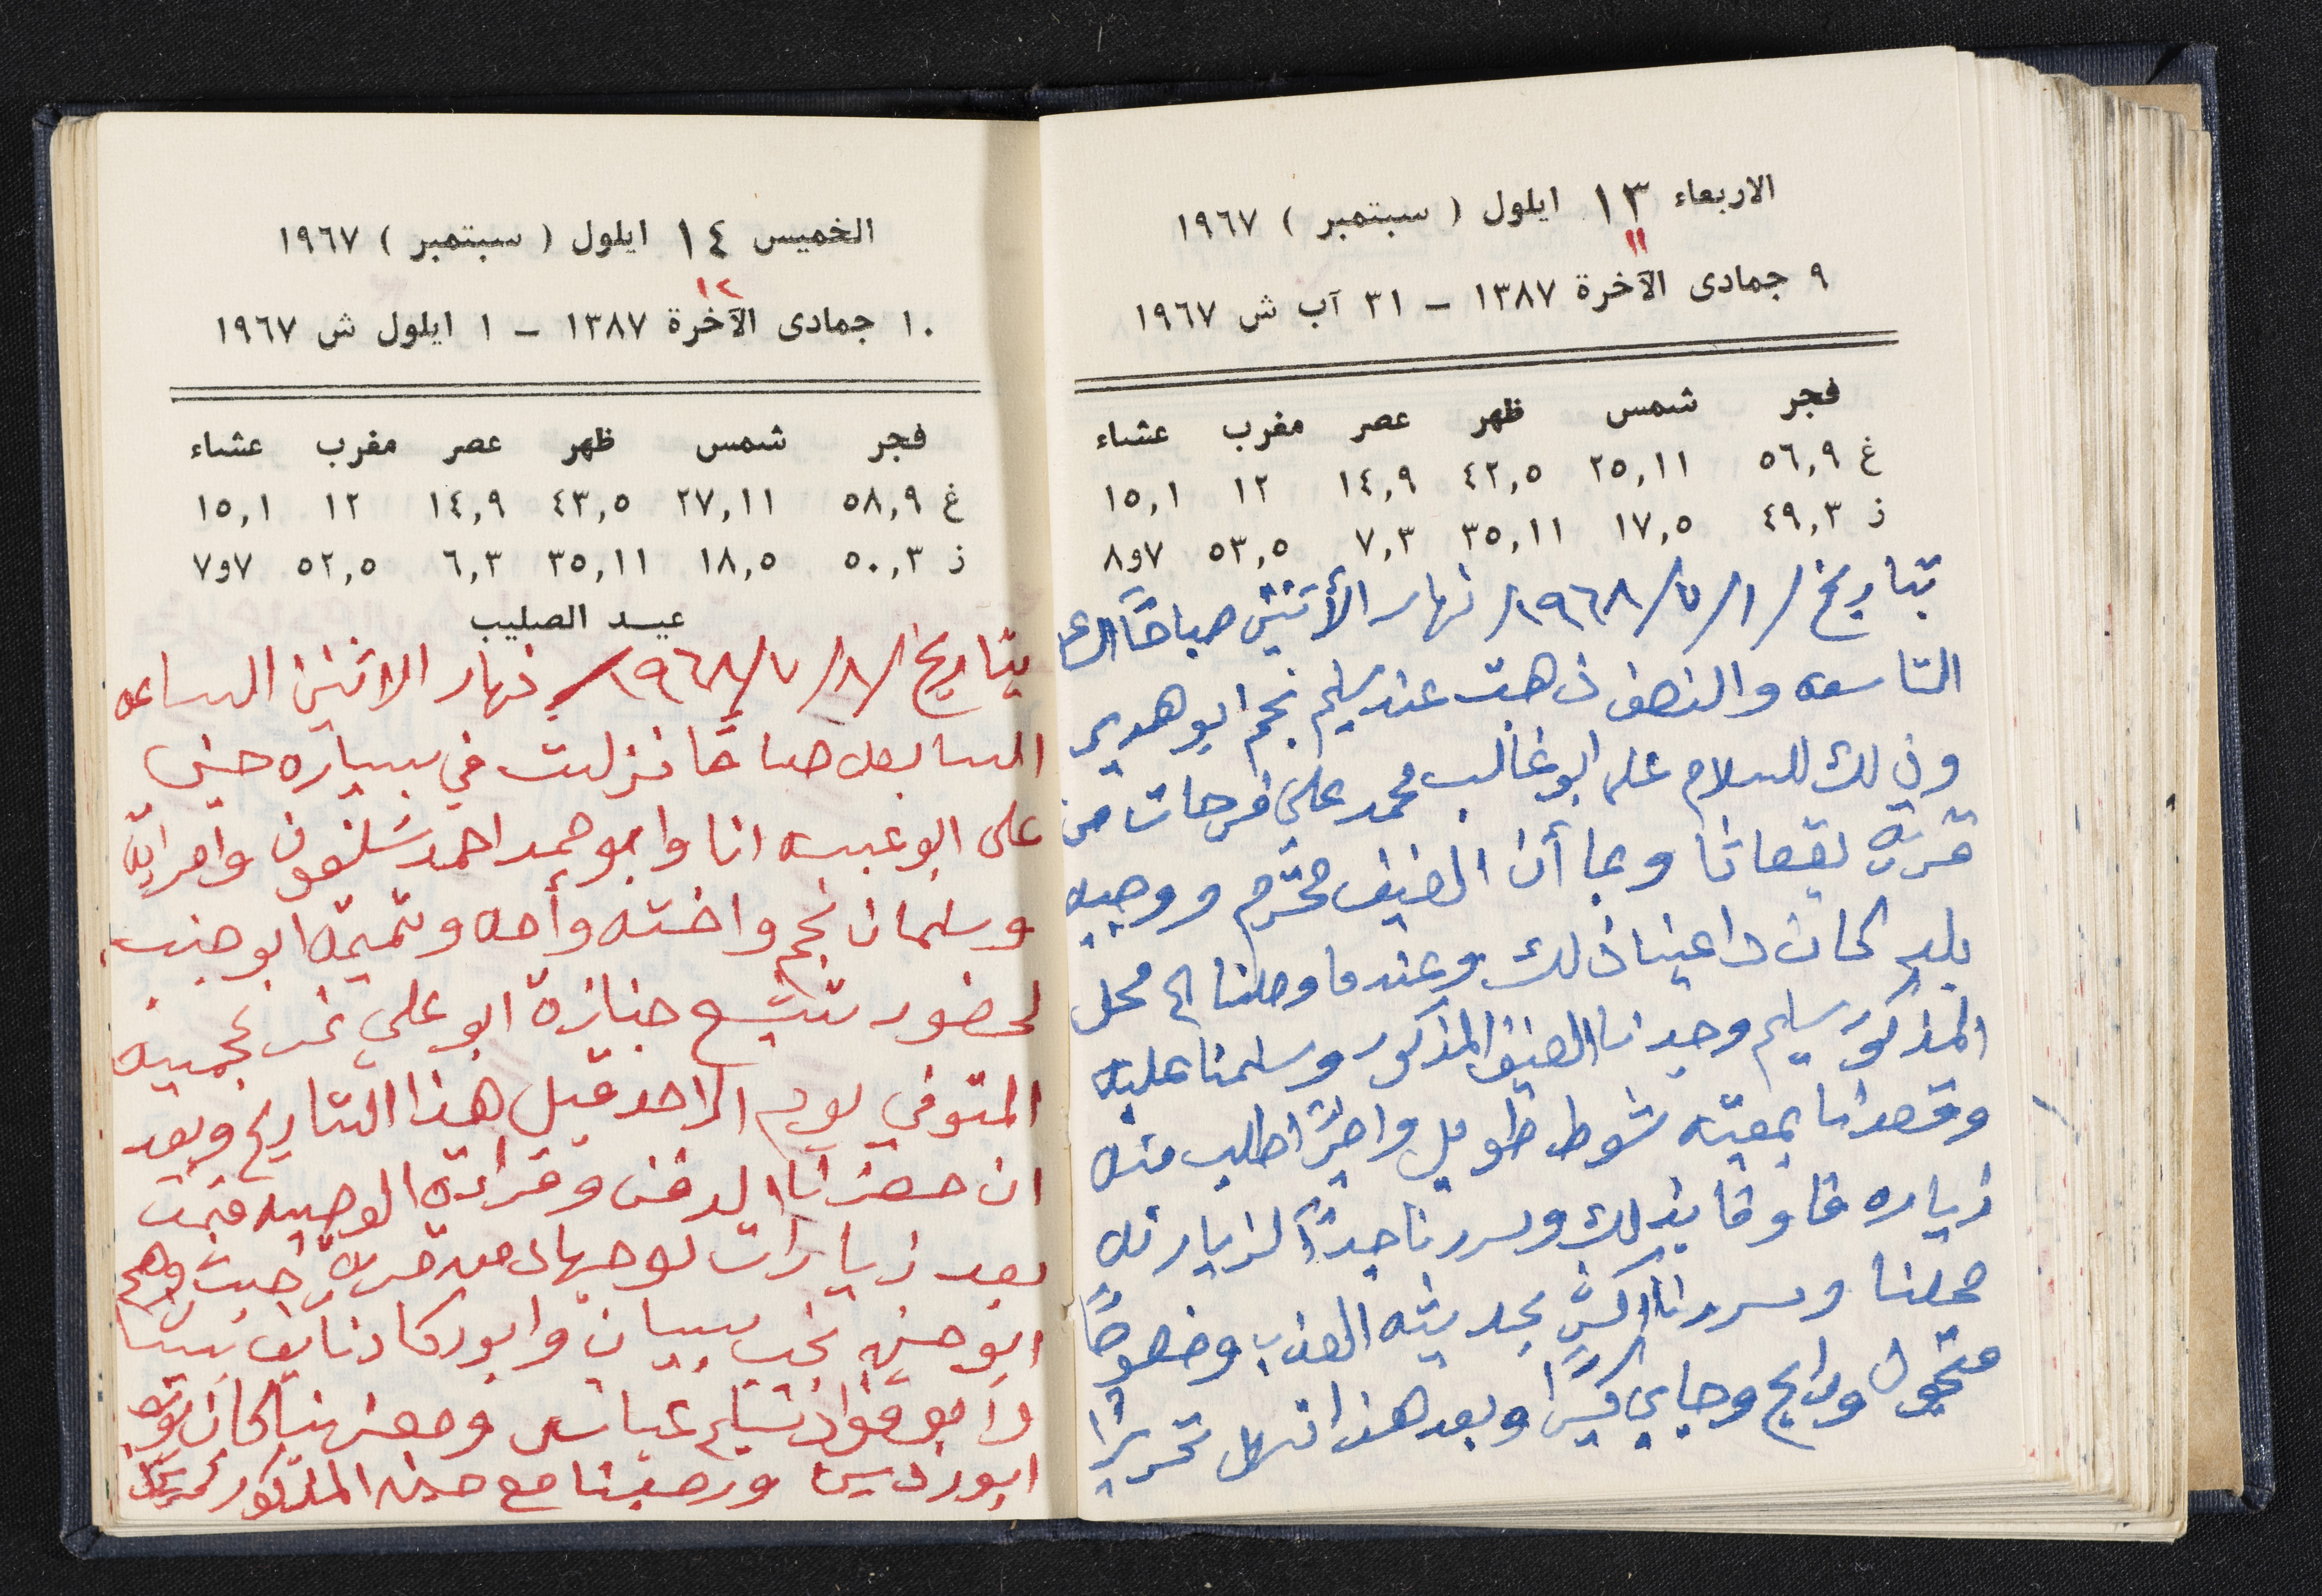 الاربعاء ١٣ ايلول ( سبتمبر ) ١٩٦٧
١١
٩ جمادى الآخرة ١٣٨٧ – ٣١ آب ش ١٩٦٧
فجر شمس ظهر عصر مغرب عشاء
غ ٥٦,٩ ٢٥,١١ ٤٢,٥ ١٤,٩ ١٢ ١٥,١
ز ٤٩,٣ ١٧,٥ ٣٥,١١ ٧,٣ ٥٣,٥ ٧و٨
بتاريخ /١/٧/١٩٦٨/ نهار الأثنين صباحًا
التاسعه والنصف ذهبت عند سليم نجم ابو هدير
وذلك للسلام على ابو غالب محمد علي فرحات من
قرية بقعاثا وبما أن الضيف محترم ووجيه
بلد كان داعينا ذلك وعندما وصلنا الى محل
المذكور سليم وجدنا الضيف المذكور وسلمنا عليه
وقعدنا بمعيته شوط طويل واخيرًا طلب منه
زياره فاوفا بذلك وسررنا جدًا لزيارته
محلنا وسررنا اكثر بحديثه العذب وخصوصًا
متجول ورايح وجاي كثيرًا وبعد هذا تحريرًا
الخميس ١٤ ايلول ( سبتمبر ) ١٩٦٧
١٢
١٠ جمادى الآخرة ١٣٨٧ – ١ ايلول ش ١٩٦٧
فجر شمس ظهر عصر مغرب عشاء
غ ٥٨,٩ ٢٧,١١ ٤٣,٥ ١٤,٩ ١٢ ١٥,١
ز ٥٠,٣ ١٨,٥ ٣٥,١١ ٦,٣ ٥٢,٥ ٧و٧
عيـد الصليب
بتاريخ /٨/٧/١٩٦٨/ نهار الاثنين الساعه
السابعه صباحًا نزلت في سياره حسن
على ابو عبيد انا وابو حمد احمد شلغون وامرأته
وسلمان نجم واخته وأمه وتميمة ابو
لحضور تشيع جنازة ابو علي
المتوفي يوم الاحد قبل هذا التاريخ وبعد
ان حضرنا الدفن وقراءة الوصيه قمت
بعد زيارات لوجهاء من قرية وهم
ابو حسن نجيب بيان وابو ركاد نايف
وابو فواد سليم عباس كان
ابو ورجعنا مع حسن المذكور